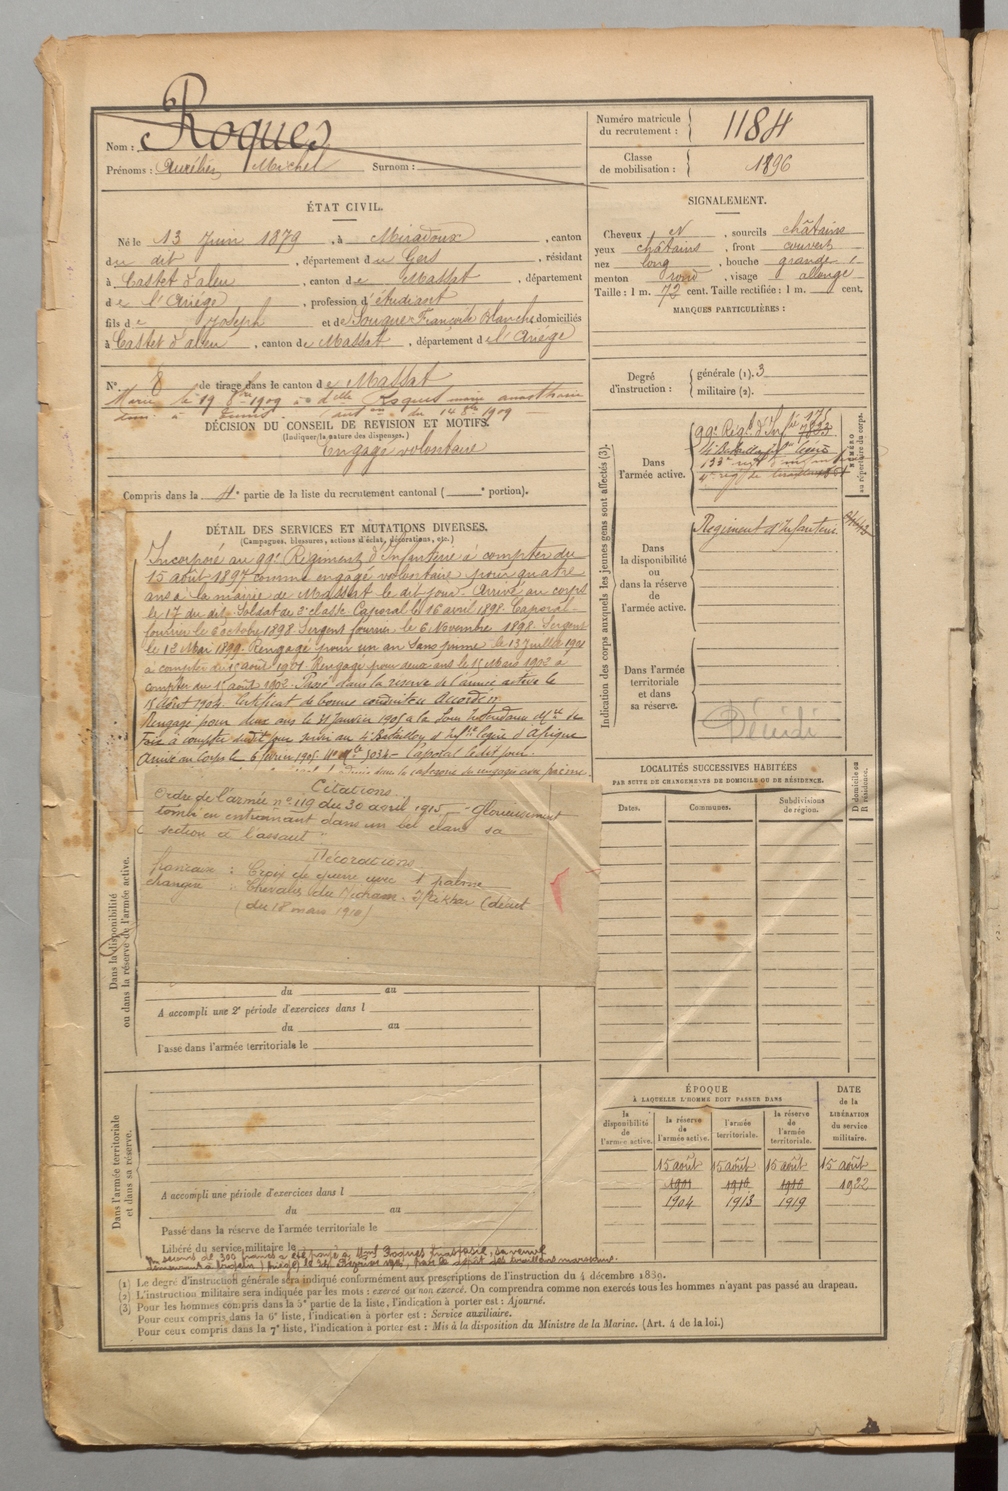 Nom : Roques
Prénoms : Aurélien Michel Surnom :
Numéro matricule du recrutement : 1184
Classe de mobilisation : 1896
ÉTAT CIVIL.
Né le 13 Juin 1879, à Miradoux, canton
du dit, département du Gers, résidant
à Castet d'aleu, canton de Massat, département
de l'Ariége, profession d'étudiant
fils de Joseph et de Souquer Françoise Blanche domiciliés
à Castet d'aleu, canton de Massat, département de l'Ariége
SIGNALEMENT.
Cheveux N, sourcils châtains
yeux châtains, front couvert
nez long, bouche grande
menton rond, visage allongé
Taille : 1 m. 72 cent. Taille rectifiée : 1 m. cent.
MARQUES PARTICULIÈRES :
N° 8 de tirage dans le canton de Massat
Marié le 19 8bre 1909 à Delle Roques marie
à Tunis. (aut on du 14 8bre 1909
DÉCISION DU CONSEIL DE REVISION ET MOTIFS.
(Indiquer la nature des dispenses.)
Engagé volontaire
Compris dans la 4e partie de la liste du recrutement cantonal ( e portion).
Degré d'instruction :
générale (1). 3
militaire (2).
DÉTAIL DES SERVICES ET MUTATIONS DIVERSES.
(Campagnes, blessures, actions d'éclat, décorations, etc.)
Incorporé au 99e Régiment d'Infanterie à compter du
15 août 1897 comme engagé volontaire pour quatre
ans à la mairie de Massat le dit jour. Arrivé au corps
le 17 du dit. Soldat de 2e classe. Caporal le 16 avril 1898. Caporal
fourrier le 6 octobre 1898. Sergent fourrier le 6 Novembre 1898. Sergent
le 12 Mai 1899. Rengagé pour un an sans prime le 13 Juillet 1901
à compter du 15 août 1901. Rengagé pour deux ans le 15 Mars 1902 à
compter du 15 août 1902. Passé dans la réserve de l'armée active le
15 Août 1904. Certificat de bonne conduite Accordé
Rengagé pour deux ans le 31 Janvier 1905 à la Sous Intendance Mre de
Foix à compter dudit jour au 4e Bataillon d'Infrie légère d'Afrique
Arrivé au Corps le 6 février 1905. No Mle 3034 - Caporal ledit jour.
Citations
Ordre de l'armée n° 119 du 30 avril 1915 - Glorieusement
tombé en entrainant dans un bel élan sa
section à l'assaut
Décorations
française : Croix de guerre avec 1 palme
étrangère : Chevalier du Nicham Iftikhar (décret
(du 18 mars 1910)
Dans la disponibilité ou dans la réserve de l'armée active.
du au
A accompli une 2e période d'exercices dans l
du au
Passé dans l'armée territoriale le
Dans l'armée territoriale et dans sa réserve.
A accompli une période d'exercices dans l
du au
Passé dans la réserve de l'armée territoriale le
Libéré du service militaire le
Un secours de 300 francs a été payé à Mme Roques Anastasie, sa veuve
Indication des corps auxquels les jeunes gens sont affectés (3).
NUMÉRO au répertoire du corps.
Dans l'armée active.
99e Rég. d'Infrie
4e Bataillon d'Inf légère
Dans la disponibilité ou dans la réserve de l'armée active.
Régiment d'Infanterie
Dans l'armée territoriale et dans sa réserve.
Décédé
LOCALITÉS SUCCESSIVES HABITÉES
PAR SUITE DE CHANGEMENTS DE DOMICILE OU DE RÉSIDENCE.
Dates. Communes. Subdivisions de région.
D domicile ou R résidence.
ÉPOQUE
À LAQUELLE L'HOMME DOIT PASSER DANS
la disponibilité de l'armée active.
la réserve de l'armée active.
l'armée territoriale.
la réserve de l'armée territoriale.
DATE de la LIBÉRATION du service militaire.
15 août 15 août 15 août 15 août
1901 1910 1916 1922
1904 1913 1919
(1) Le degré d'instruction générale sera indiqué conformément aux prescriptions de l'instruction du 4 décembre 1889.
(2) L'instruction militaire sera indiquée par les mots : exercé ou non exercé. On comprendra comme non exercés tous les hommes n'ayant pas passé au drapeau.
(3) Pour les hommes compris dans la 5e partie de la liste, l'indication à porter est : Ajourné.
Pour ceux compris dans la 6e liste, l'indication à porter est : Service auxiliaire.
Pour ceux compris dans la 7e liste, l'indication à porter est : Mis à la disposition du Ministre de la Marine. (Art. 4 de la loi.)